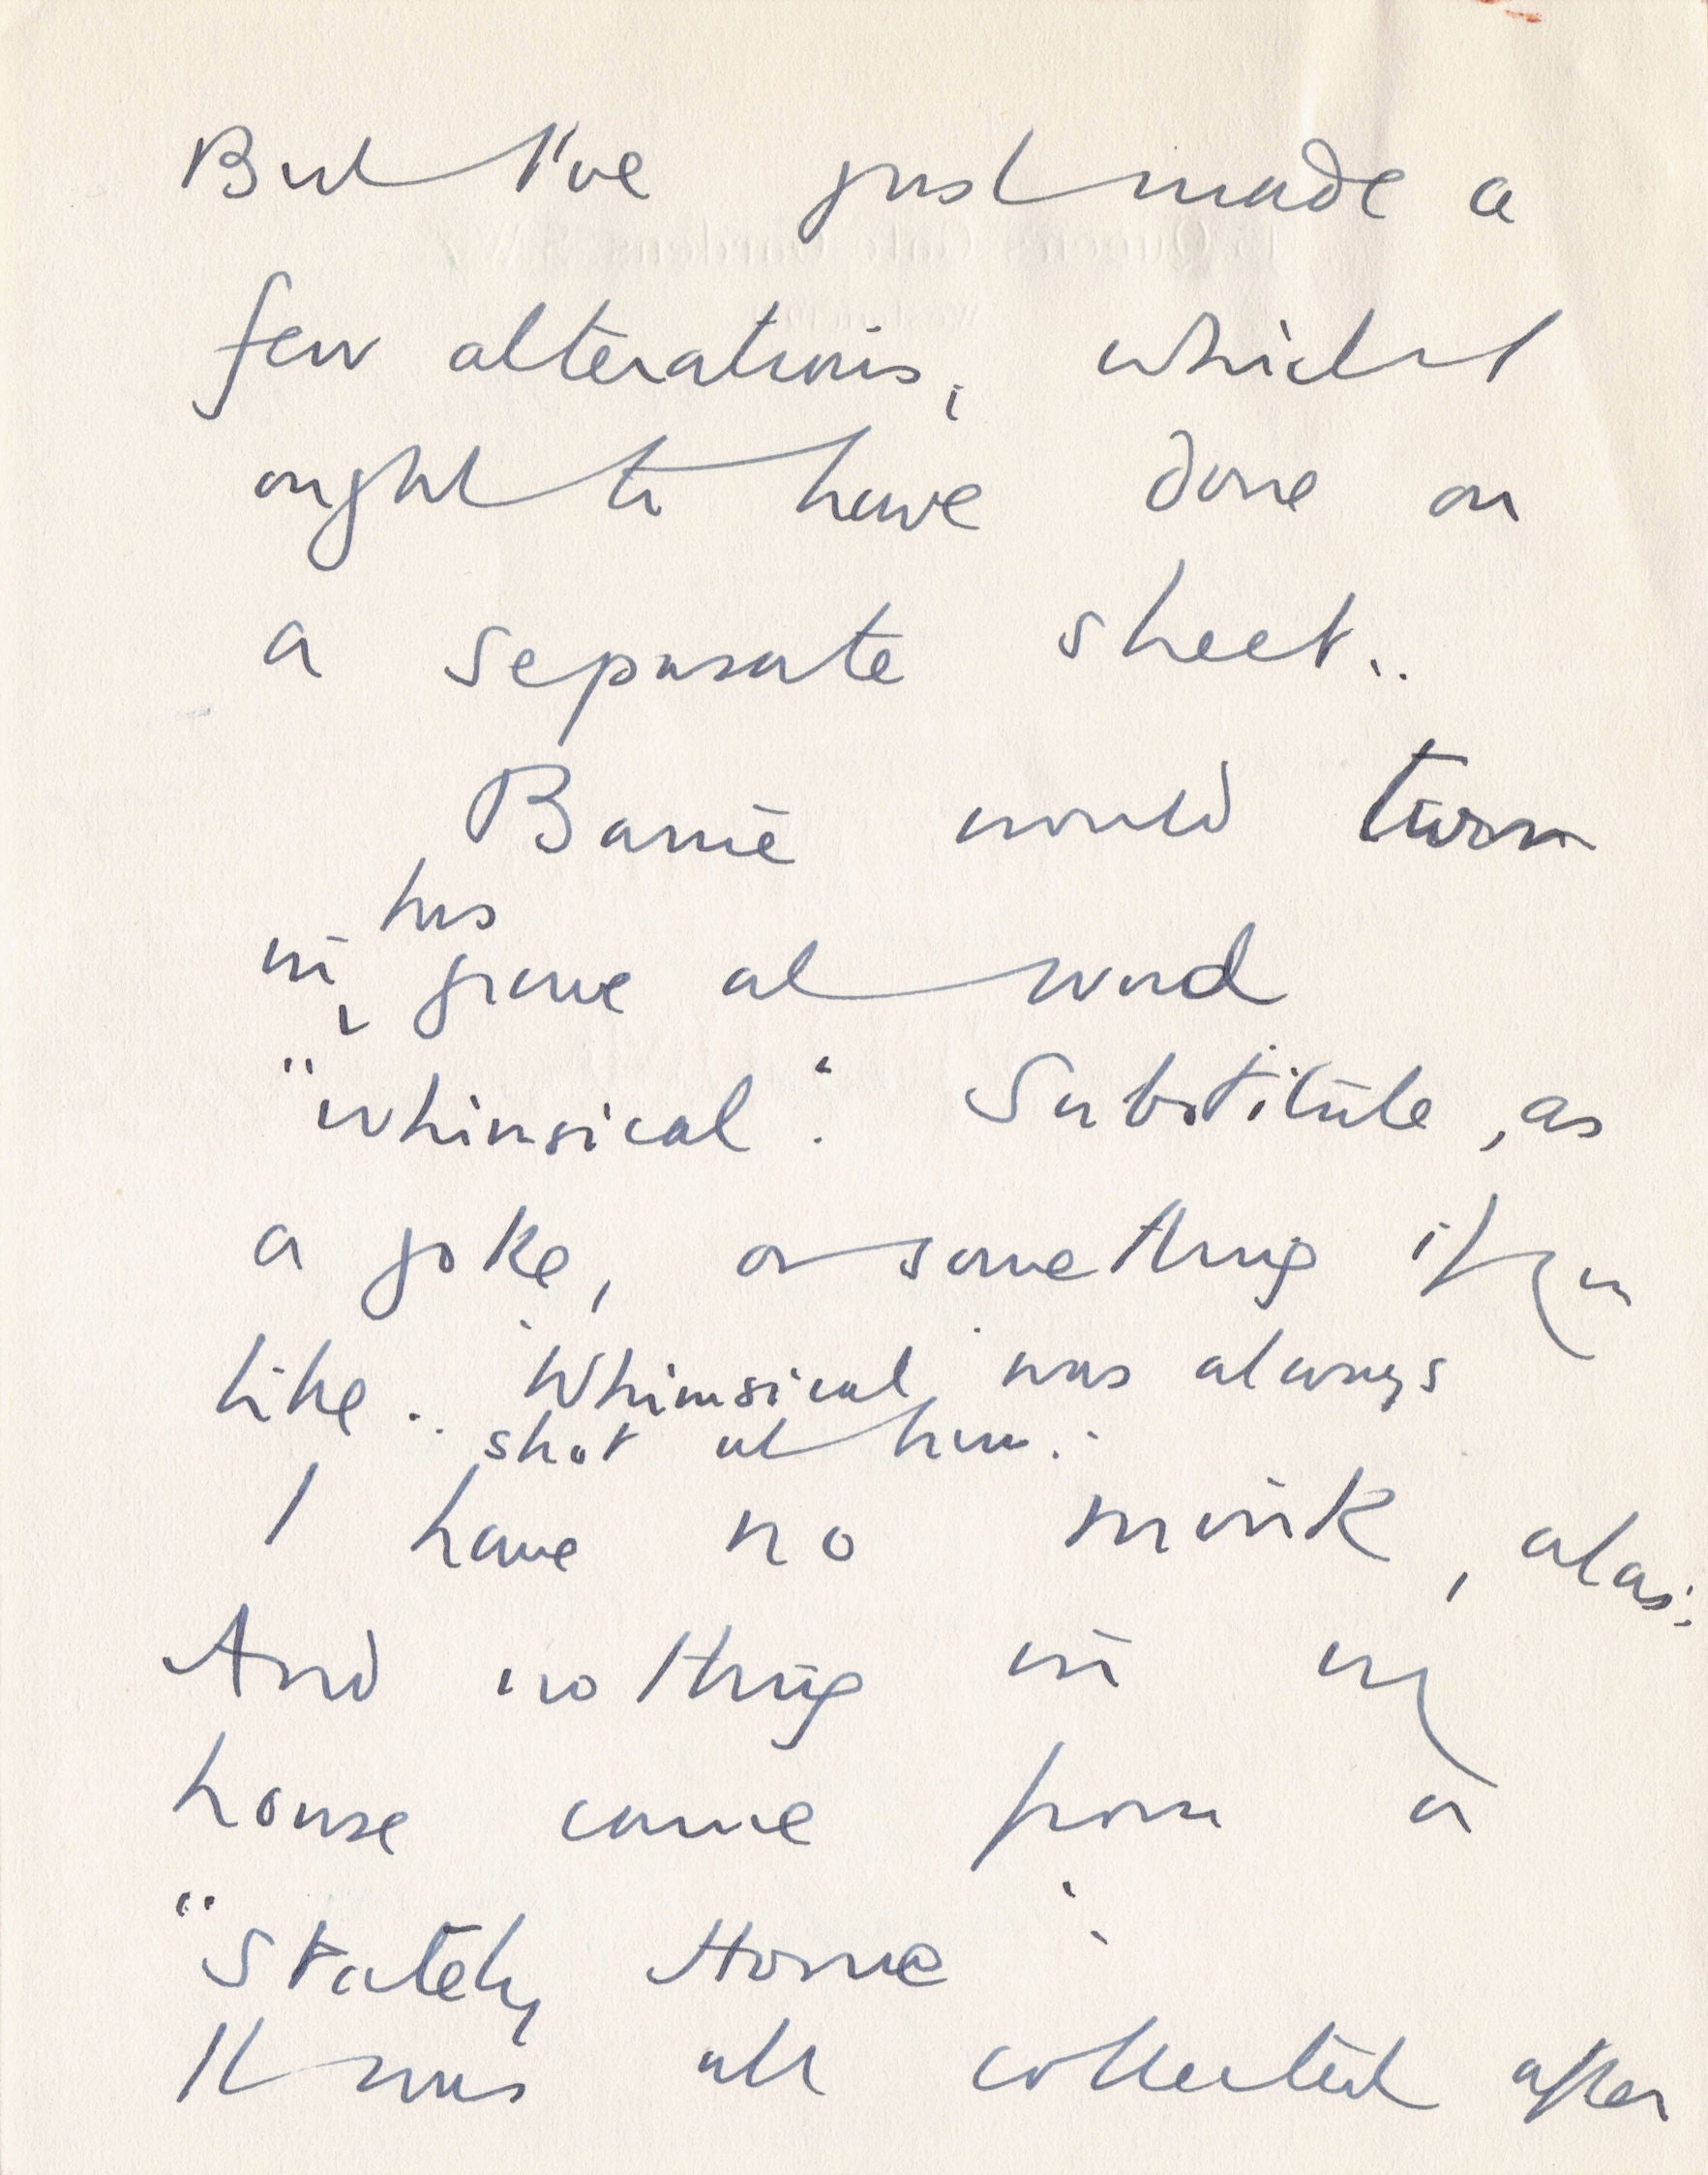 But I've just made a
few alterations, which I
ought to have done on
a separate sheet..
Barrie would turn
in his grave at word
"whimsical". Substitute, as
a joke, or something if you
like.. 'Whimsical' was always
shot at him..
I have no mink, alas..
And nothing in my
house came from a
"Stately Home".
It was all collected after